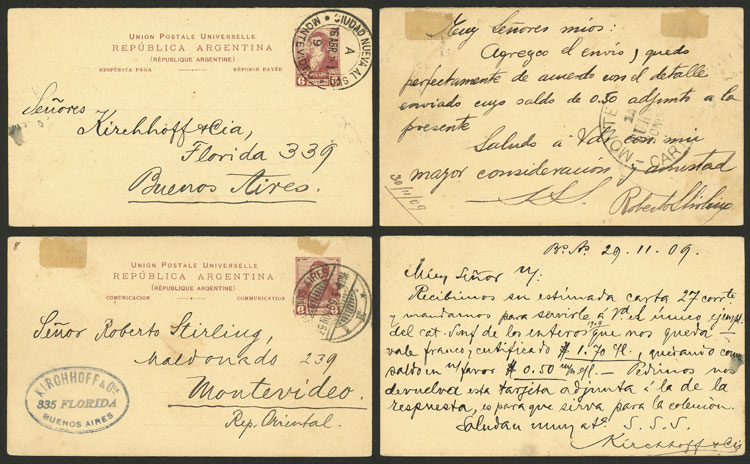 UNION POSTALE UNIVERSELLE
REPÚBLICA ARGENTINA
(RÉPUBLIQUE ARGENTINE)
RESPUESTA PAGA RÉPONSE PAYÉE
CIUDAD NUEVA AL S
A
9
MONTEVIDEO
6 6
Señores
Kirchhoff & Cia,
Florida 339
Buenos Aires.
Muy Señores mios:
Agregco el envio, quedo
perfectamente de acuerdo con el detalle
enviado cuyo saldo de 0.50 adjunto a la
presente
Saludo á Vds con mi
mayor consideración y amistad
S.S.S.
Roberto Stirling
30/11/09
MONTE
CAR
UNION POSTALE UNIVERSELLE
REPÚBLICA ARGENTINA
(RÉPUBLIQUE ARGENTINE)
COMUNICACION COMMUNICATION
6 6
BUENOS AIRES
Señor Roberto Stirling,
Maldonado 239
Montevideo.
Rep. Oriental.
KIRCHHOFF & Cia
335 FLORIDA
BUENOS AIRES
Bs. As. 29.11.09.
Muy Señor N/.
Recibimos su estimada carta 27 corrte
y mandamos para servirle á Vd el único ejempl.
del cat. Senf de los enteros que nos queda —
vale franco y certificado $ 1.70 c/l., quedando como
saldo en n/favor $ 0.50 m/n c/l. — Pedimos nos
devuelva esta tarjita adjunta á la de la
respuesta, es para que sirva para la colección.
Saludan muy ate S.S.S.
Kirchhoff & Cis